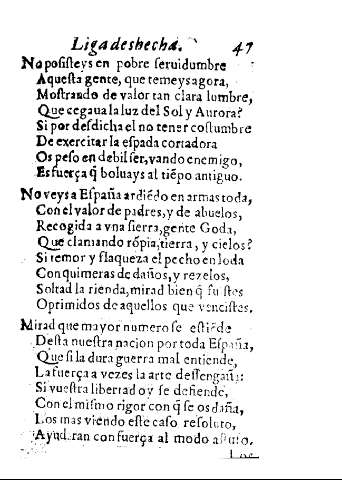 Liga deshecha. 47
No posisteys en pobre seruidumbre
Aquesta gente, que temeys agora,
Mostrando de valor tan clara lumbre,
Que cegaua la luz del Sol y Aurora?
Si por desdicha el no tener costumbre
De exercitar la espada cortadora
Os peso en debil ser, vando enemigo,
Es fuerça q̃ boluays al tiẽpo antiguo.
No veys a España ardiẽdo en armas toda,
Con el valor de padres, y de abuelos,
Recogida a vna sierra, gente Goda,
Que clamando rõpia, tierra, y cielos?
Si temor y flaqueza el pecho enloda
Con quimeras de daños, y rezelos,
Soltad la rienda, mirad bien q̃ fustes
Oprimidos de aquellos que vencistes.
Mirad que mayor numero se estiẽde
Desta nuestra nacion por toda España,
Que si la dura guerra mal entiende,
La fuerça a vezes la arte dessengaña:
Si vuestra libertad oy se defiende,
Con el mismo rigor con q̃ se os daña,
Los mas viendo este caso resoluto,
Ayudaran con fuerça al modo astuto.
Los